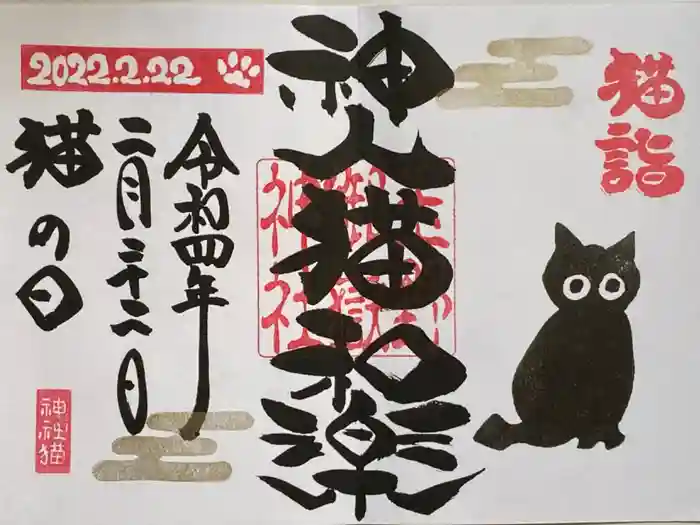 猫詣
神人猫和楽
御嶽
神社
令和四年
二月二十二日
猫の日
2022.2.22
神社猫